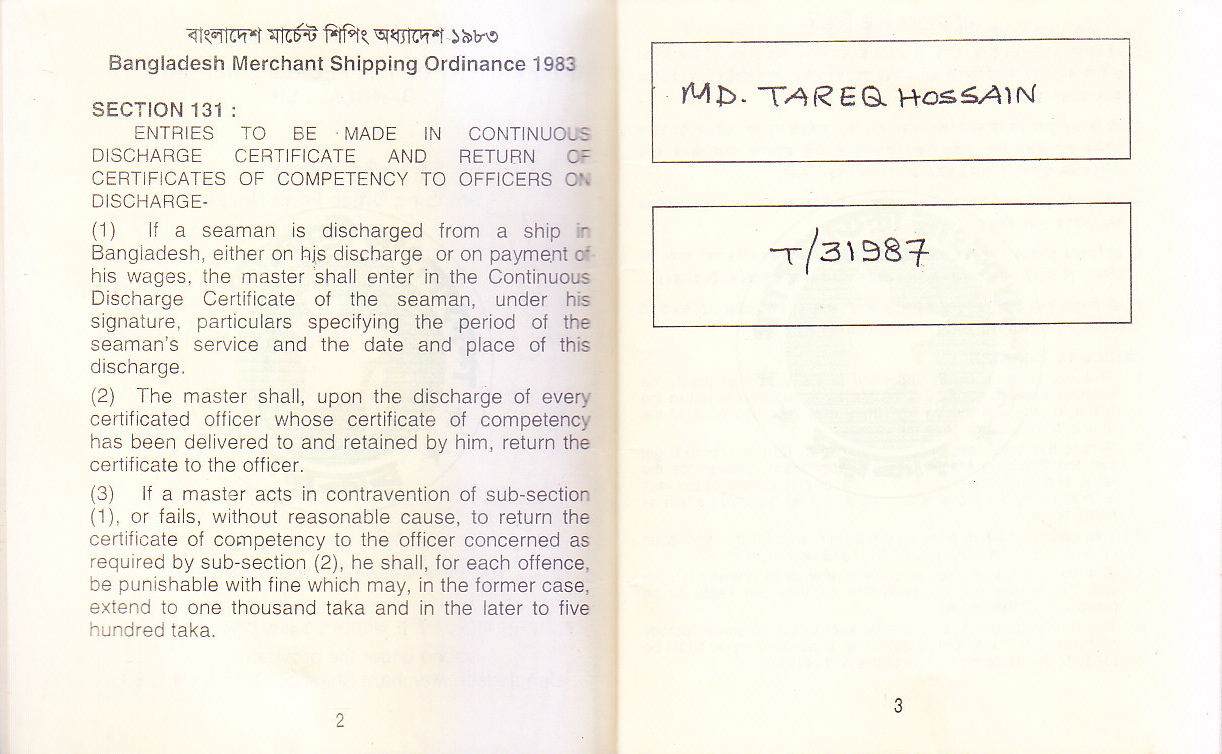 বাংলাদেশ মার্চেন্ট শিপিং অধ্যাদেশ ১৯৮৩
Bangladesh Merchant Shipping Ordinance 1983
SECTION 131 :
ENTRIES TO BE MADE IN CONTINUOUS
DISCHARGE CERTIFICATE AND RETURN OF
CERTIFICATES OF COMPETENCY TO OFFICERS ON
DISCHARGE-
(1) If a seaman is discharged from a ship in
Bangladesh, either on his discharge or on payment of
his wages, the master shall enter in the Continuous
Discharge Certificate of the seaman, under his
signature, particulars specifying the period of the
seaman's service and the date and place of this
discharge.
(2) The master shall, upon the discharge of every
certificated officer whose certificate of competency
has been delivered to and retained by him, return the
certificate to the officer.
(3) If a master acts in contravention of sub-section
(1), or fails, without reasonable cause, to return the
certificate of competency to the officer concerned as
required by sub-section (2), he shall, for each offence,
be punishable with fine which may, in the former case,
extend to one thousand taka and in the later to five
hundred taka.
2
MD. TAREQ HOSSAIN
T/31987
3